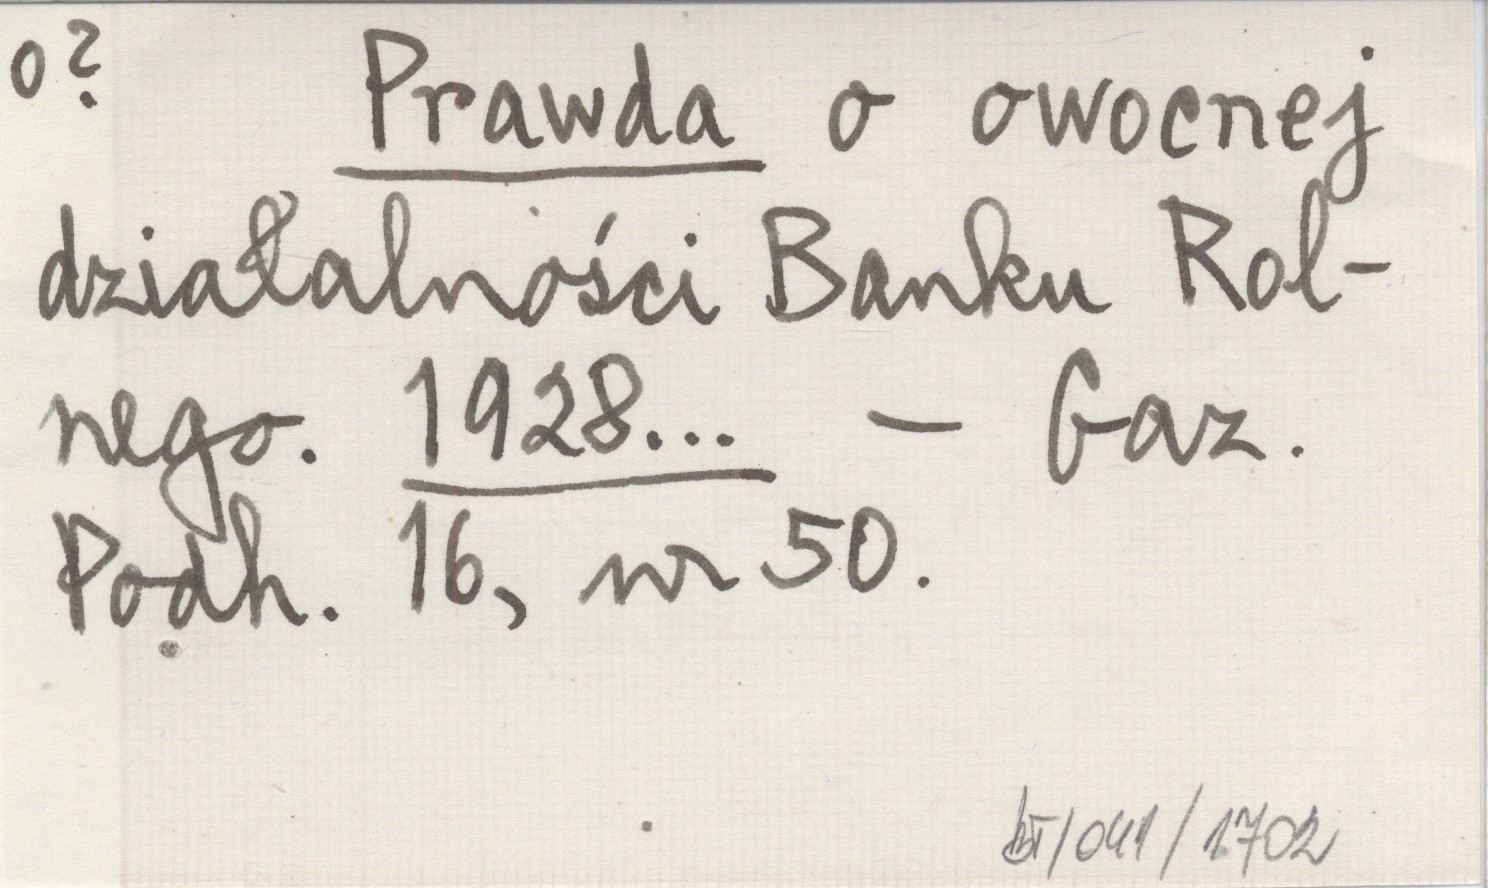 o?
Prawda o owocnej
działalności Banku Rol-
nego. 1928... – Gaz.
Podh. 16, nr 50.
/041/1702